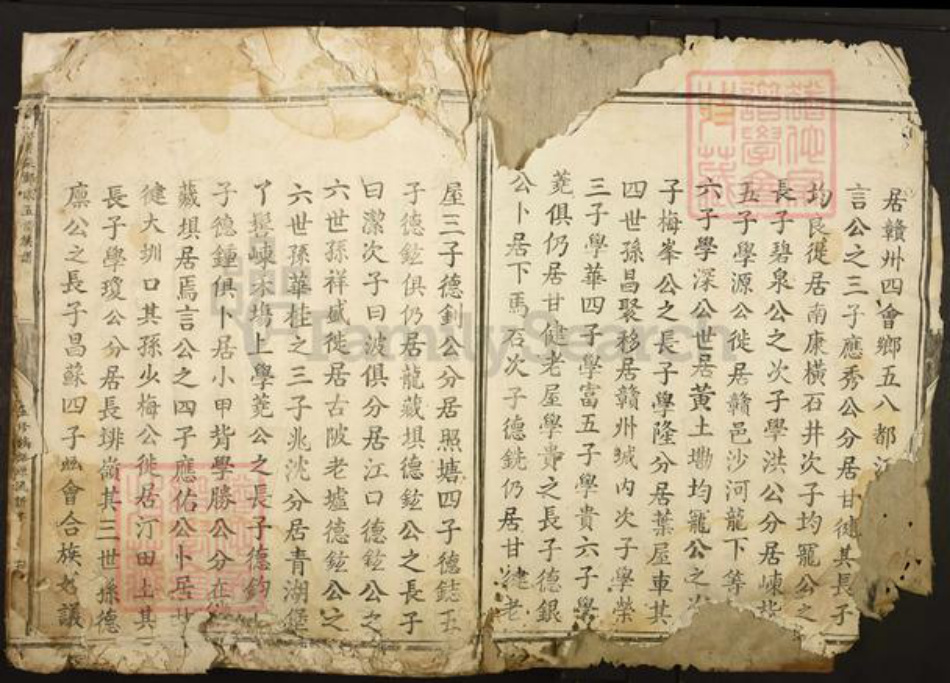 居贛州四會鄉五八都江
言公之三子應秀公分居甘健其長子
均良從居南康橫石井次子均罷公之
長子碧泉公之次子學洪公分居崠背
五子學源公徙居贛邑沙河龍下等
六子學深公世居黃土墈均罷公之次
子梅峯公之長子學隆分居葉屋車其
四世孫昌聚移居贛州城內次子學榮
三子學華四子學富五子學貴六子學
蒄俱仍居甘健老屋學貴之長子德銀
公卜居下馬石次子德銑仍居甘健老
屋三子德釗公分居照塘四子德鋕五
子德鉉俱仍居龍藏垻德鉉公之長子
曰潔次子曰波俱分居江口德鉉公之
六世孫祥盛徙居古陂老墟德鉉公之
六世孫華桂之三子兆沈分居青湖堡
丫髻崠宋塢上學蒄公之長子德鈞
子德鍾俱卜居小甲背學勝公分在
藏垻居焉言公之四子應佑公卜居甘
健大圳口其孫少梅公徙居汀田上其
長子學瓊公分居長排嶺其三世孫德
廩公之長子昌蘇四子 會合族妥議
FamilySearch